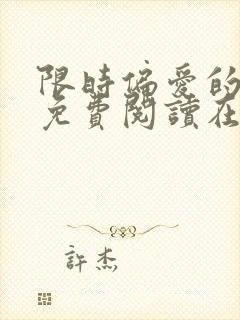 限時偏愛的
免費閱讀在
許杰